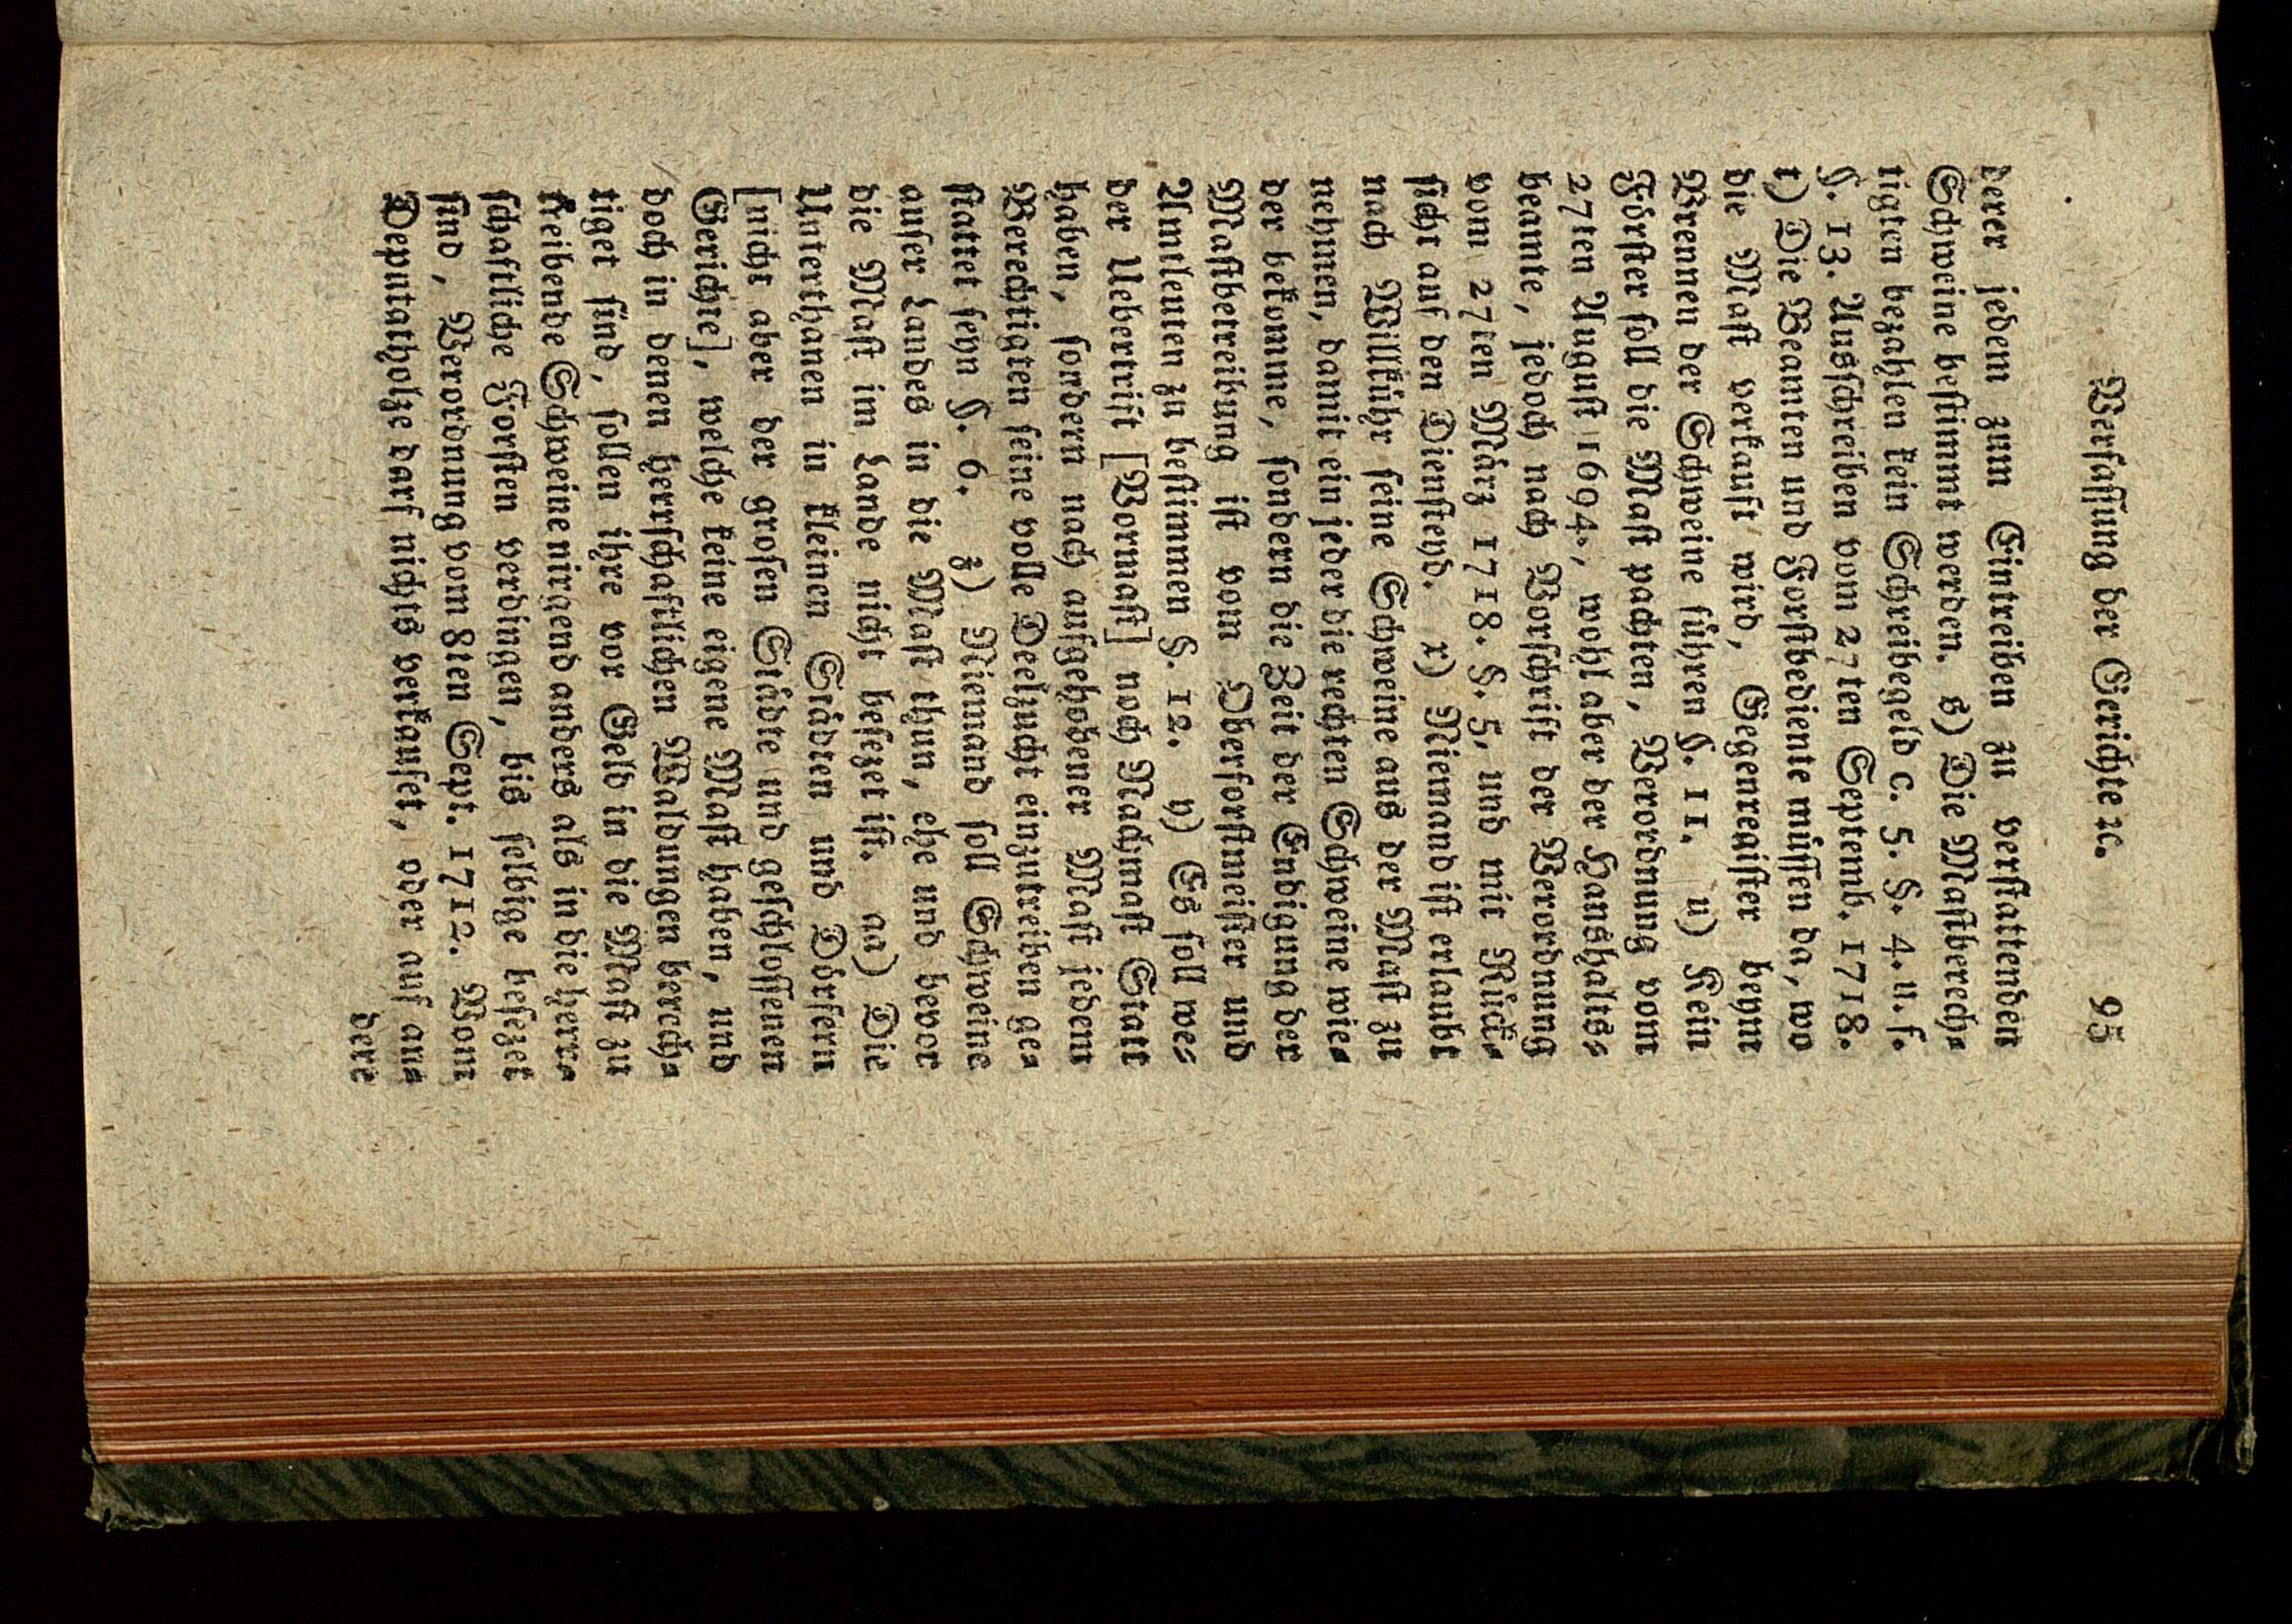 Verfaſſung der Gerichte ꝛc. 95
derer jedem zum Eintreiben zu verſtattenden
Schweine beſtimmt werden. s) Die Maſtberech-
tigten bezahlen kein Schreibegeld c. 5. §. 4. u. f.
§. 13. Ausſchreiben vom 27ten Septemb. 1718.
t) Die Beamten und Forſtbediente müſſen da, wo
die Maſt verkauft wird, Gegenregiſter beym
Brennen der Schweine führen §. 11. u) Kein
Förſter ſoll die Maſt pachten, Verordnung vom
27ten Auguſt 1694., wohl aber der Haushalts-
beamte, jedoch nach Vorſchrift der Verordnung
vom 27ten März 1718. §. 5. und mit Rück-
ſicht auf den Dienſteyd. x) Niemand iſt erlaubt
nach Willkühr ſeine Schweine aus der Maſt zu
nehmen, damit ein jeder die rechten Schweine wie-
der bekomme, ſondern die Zeit der Endigung der
Maſtbetreibung iſt vom Oberforſtmeiſter und
Amtleuten zu beſtimmen §. 12. y) Es ſoll we-
der Uebertrift [Vormaſt] noch Nachmaſt Statt
haben, ſondern nach aufgehobener Maſt jedem
Berechtigten ſeine volle Deelzucht einzutreiben ge-
ſtattet ſeyn §. 6. z) Niemand ſoll Schweine
auſer Landes in die Maſt thun, ehe und bevor
die Maſt im Lande nicht beſezet iſt. aa) Die
Unterthanen in kleinen Städten und Dörfern
[nicht aber der groſen Städte und geſchloſſenen
Gerichte], welche keine eigene Maſt haben, und
doch in denen herrſchaftlichen Waldungen berech-
tiget ſind, ſollen ihre vor Geld in die Maſt zu
treibende Schweine nirgend anders als in die herr-
ſchaftliche Forſten verdingen, bis ſelbige beſezet
ſind, Verordnung vom 8ten Sept. 1712. Vom
Deputatholze darf nichts verkaufet, oder auf an-
dere